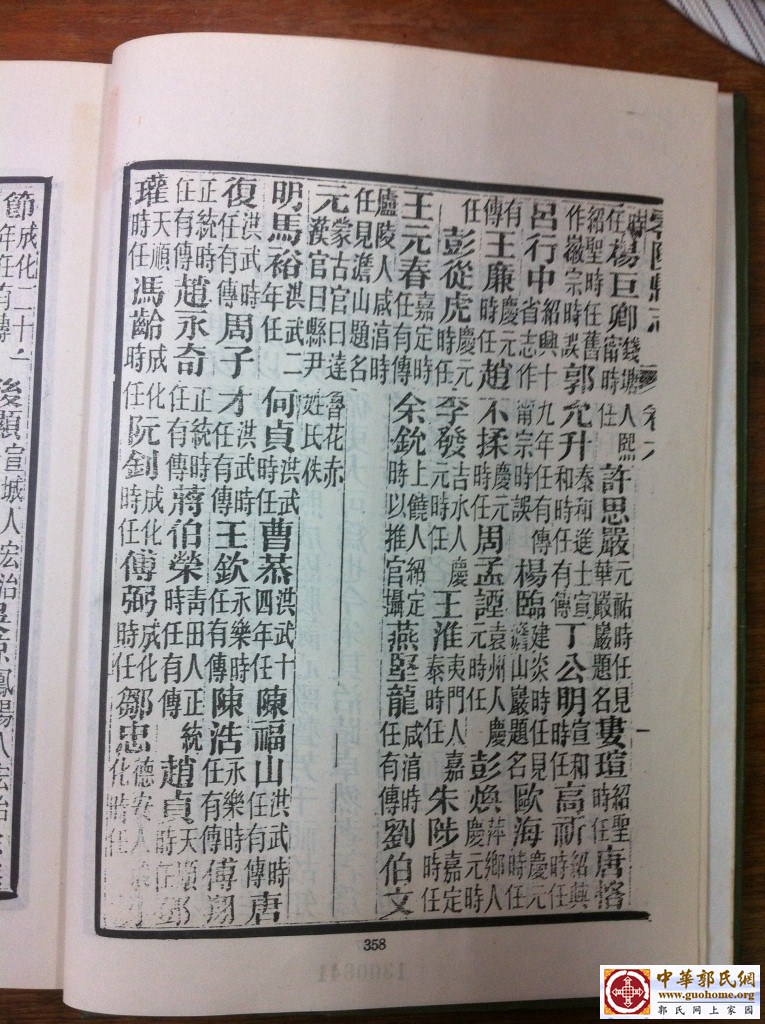 零陵縣志 卷六
時任楊巨卿錢塘人熙甯時任許思嚴元祐時任見華嚴巖題名婁瑄紹聖時任唐榕
紹聖時任舊作徽宗時誤郭允升泰和進士宣和時任有傳丁公明宣和時任高祈紹興時任
呂行中紹興十九年任有傳省志作甯宗時誤楊臨建炎時任見澹山巖題名歐海慶元時任
有傳王廉慶元時任趙不揉慶元時任周孟諲袁州人慶元時任彭煥萍鄉人慶元時
任彭從虎慶元時任李發吉水人慶元時任王淮夷門人嘉泰時任朱陟嘉定時任
王元春嘉定時任有傳余銃上饒人紹定時以推官攝燕堅龍咸淯時任有傳劉伯文
廬陵人咸淯時任見澹山題名
元蒙古官曰達魯花赤漢官曰縣尹姓氏佚
明馬裕洪武二年任何貞洪武時任曹恭洪武十四年任陳福山洪武時任有傳唐
復洪武時任有傳周子才洪武時任有傳王欽永樂時任有傳陳浩永樂時任有傳傅翔
正統時任有傳趙永奇正統時任有傳蔣伯榮青田人正統時任有傳趙貞天順時任鄧
瓘天順時任馮齡成化時任阮釗成化時任傅弼成化時任鄒忠德安人成化時任
358
節成化二十 年任有傳後顯宣城人宏治 鳳陽人宏治
中華郭氏網
www.guohome.org
郭氏网上家园